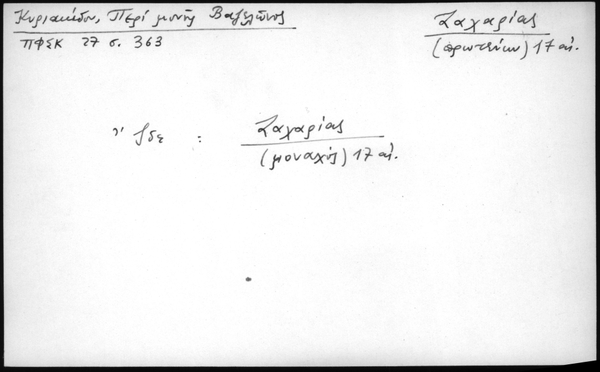 Κυριακίδου, Περί μονής Βαζελῶνος
ΠΦΣΚ 27 σ. 363
Ζαχαρίας
(πρωτεύων) 17 αἰ.
Ἴδε : Ζαχαρίας
(μοναχός) 17 αἰ.